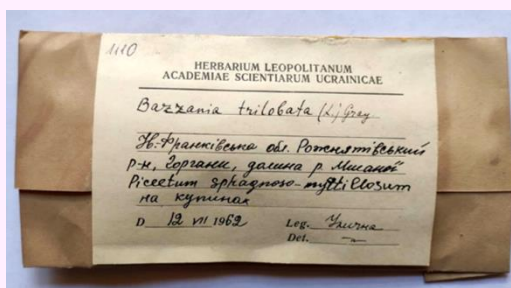 1110
HERBARIUM LEOPOLITANUM
ACADEMIAE SCIENTIARUM UCRAINICAE
Bazzania trilobata (L.) Gray
Ів-Франківська обл. Рожнятівський
р-н, Горгани, долина р.
Piceetum sphagnoso-myrtillosum
на купинах
D 12 VII 1962 Leg. Улична
Det. —"—